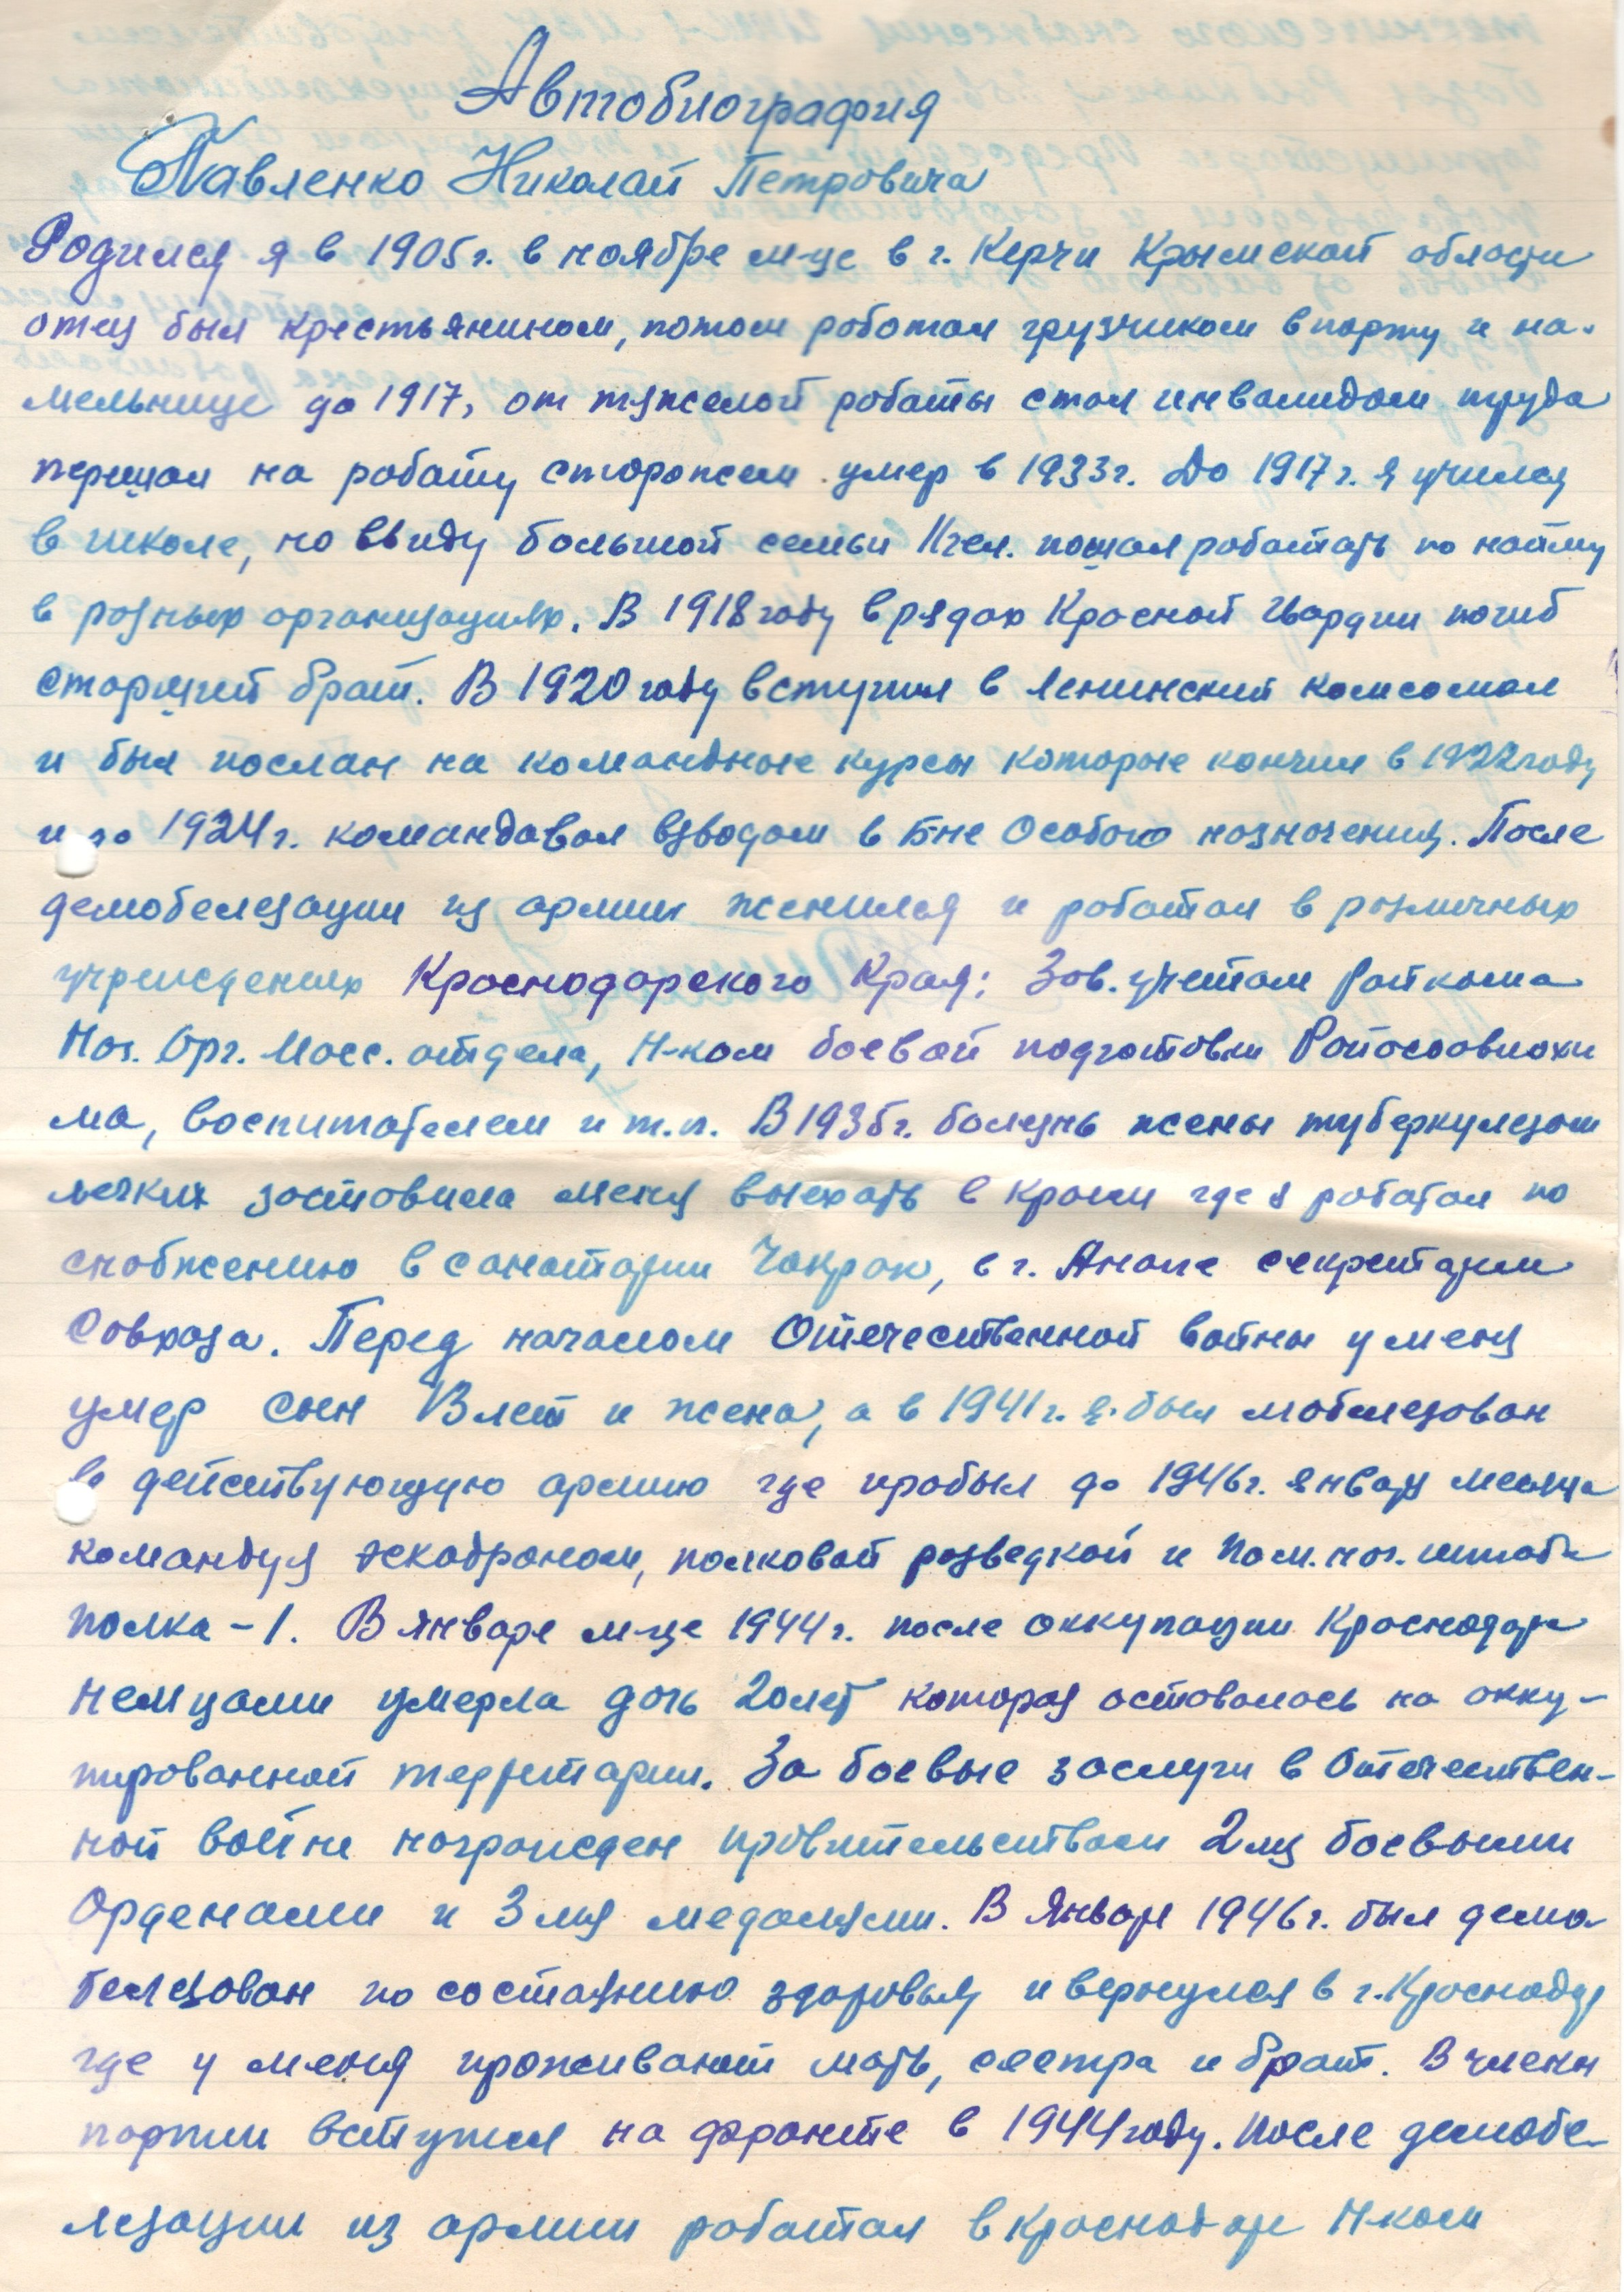 Автобиография
Павленко Николай Петровича
Родился я в 1905г. в ноябре м-це в г. Керчи Крымской области
отец был крестьянином, потом работал грузчиком в порту и на-
мельнице до 1917, от тяжелой работы стал инвалидом труда
перешол на работу сторожем умер в 1933г. До 1917г. я учился
в школе, но ввиду большой семьи 11 чел. пошол работать по найму
в разных организациях. В 1918 году в рядах Красной гвардии погиб
старший брат. В 1920 году вступил в Ленинский комсомол
и был послан на командные курсы которые кончил в 1922 году
и до 1924г. командовал взводом в б-не Особого назначения. После
демобелезации из армии женился и работал в различных
учреждениях Краснодарского Края: Зав. учетом Райкома
Нач. Орг. Масс. отдела, Н-ком боевой подготовки Райосоовиахи
ма, воспитателем и т.п. В 1935г. болезнь жены туберкулезом
легких заставила меня выехать в Крым где я работал по
снабжению в санатории Чокрак, в г. Анапе секретарем
Совхоза. Перед началом Отечественной войны у меня
умер сын 13 лет и жена, а в 1941г. я был мобелезован
в действующую армию где пробыл до 1946г. января месяца
командуя эскадроном, полковой разведкой и Пом. нач. штаба
полка-1. В январе м-це 1944г. после оккупации Краснодара
немцами умерла дочь 20 лет которая оставалось на окку-
пированной территории. За боевые заслуги в Отечествен-
ной войне награжден правительством 2мя боевыми
Орденами и 3мя медалями. В Январе 1946г. был демо
белезован по состоянию здоровья и вернулся в г. Краснодар
где у меня проживают мать, сестра и брат. В члены
партии вступил на фронте в 1944 году. После демобе-
лезации из армии работал в Краснодаре Н-ком